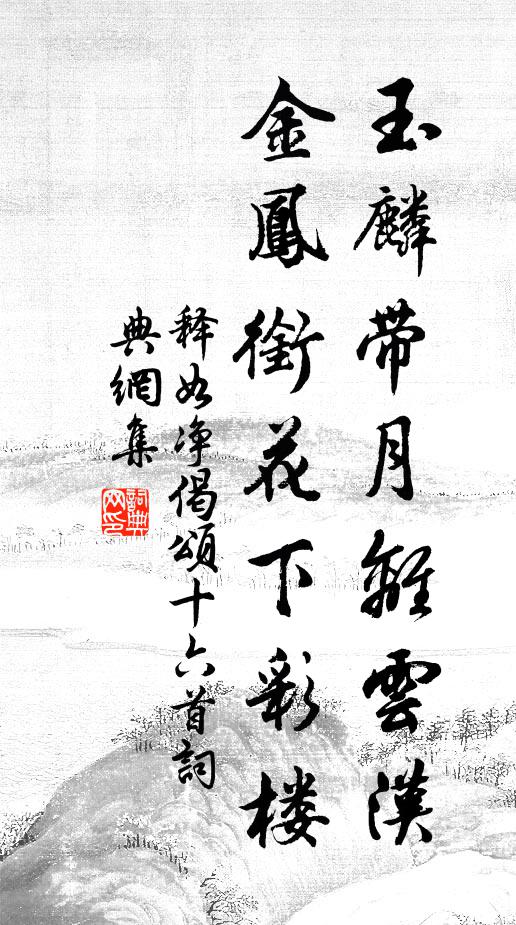 玉麟带月離雲漢
金鳳銜花下彩楼
释如净偈頌十六首詞
典網集
詞典网印